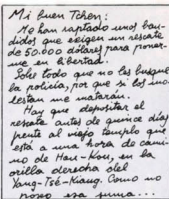 Mi buen Tchen:
Me han raptado unos ban-
didos que exigen un rescate
de 50.000 dólares para poner-
me en libertad.
Sobre todo que no les busque
la policía, por que si les mo-
lestan me matarán.
Hay que depositar el
rescate antes de quince días
frente al viejo templo que
está a una hora de cami-
no de Han-Kou, en la
orilla derecha del
Yang-Tsé-Kiang. Como no
poseo esa suma...